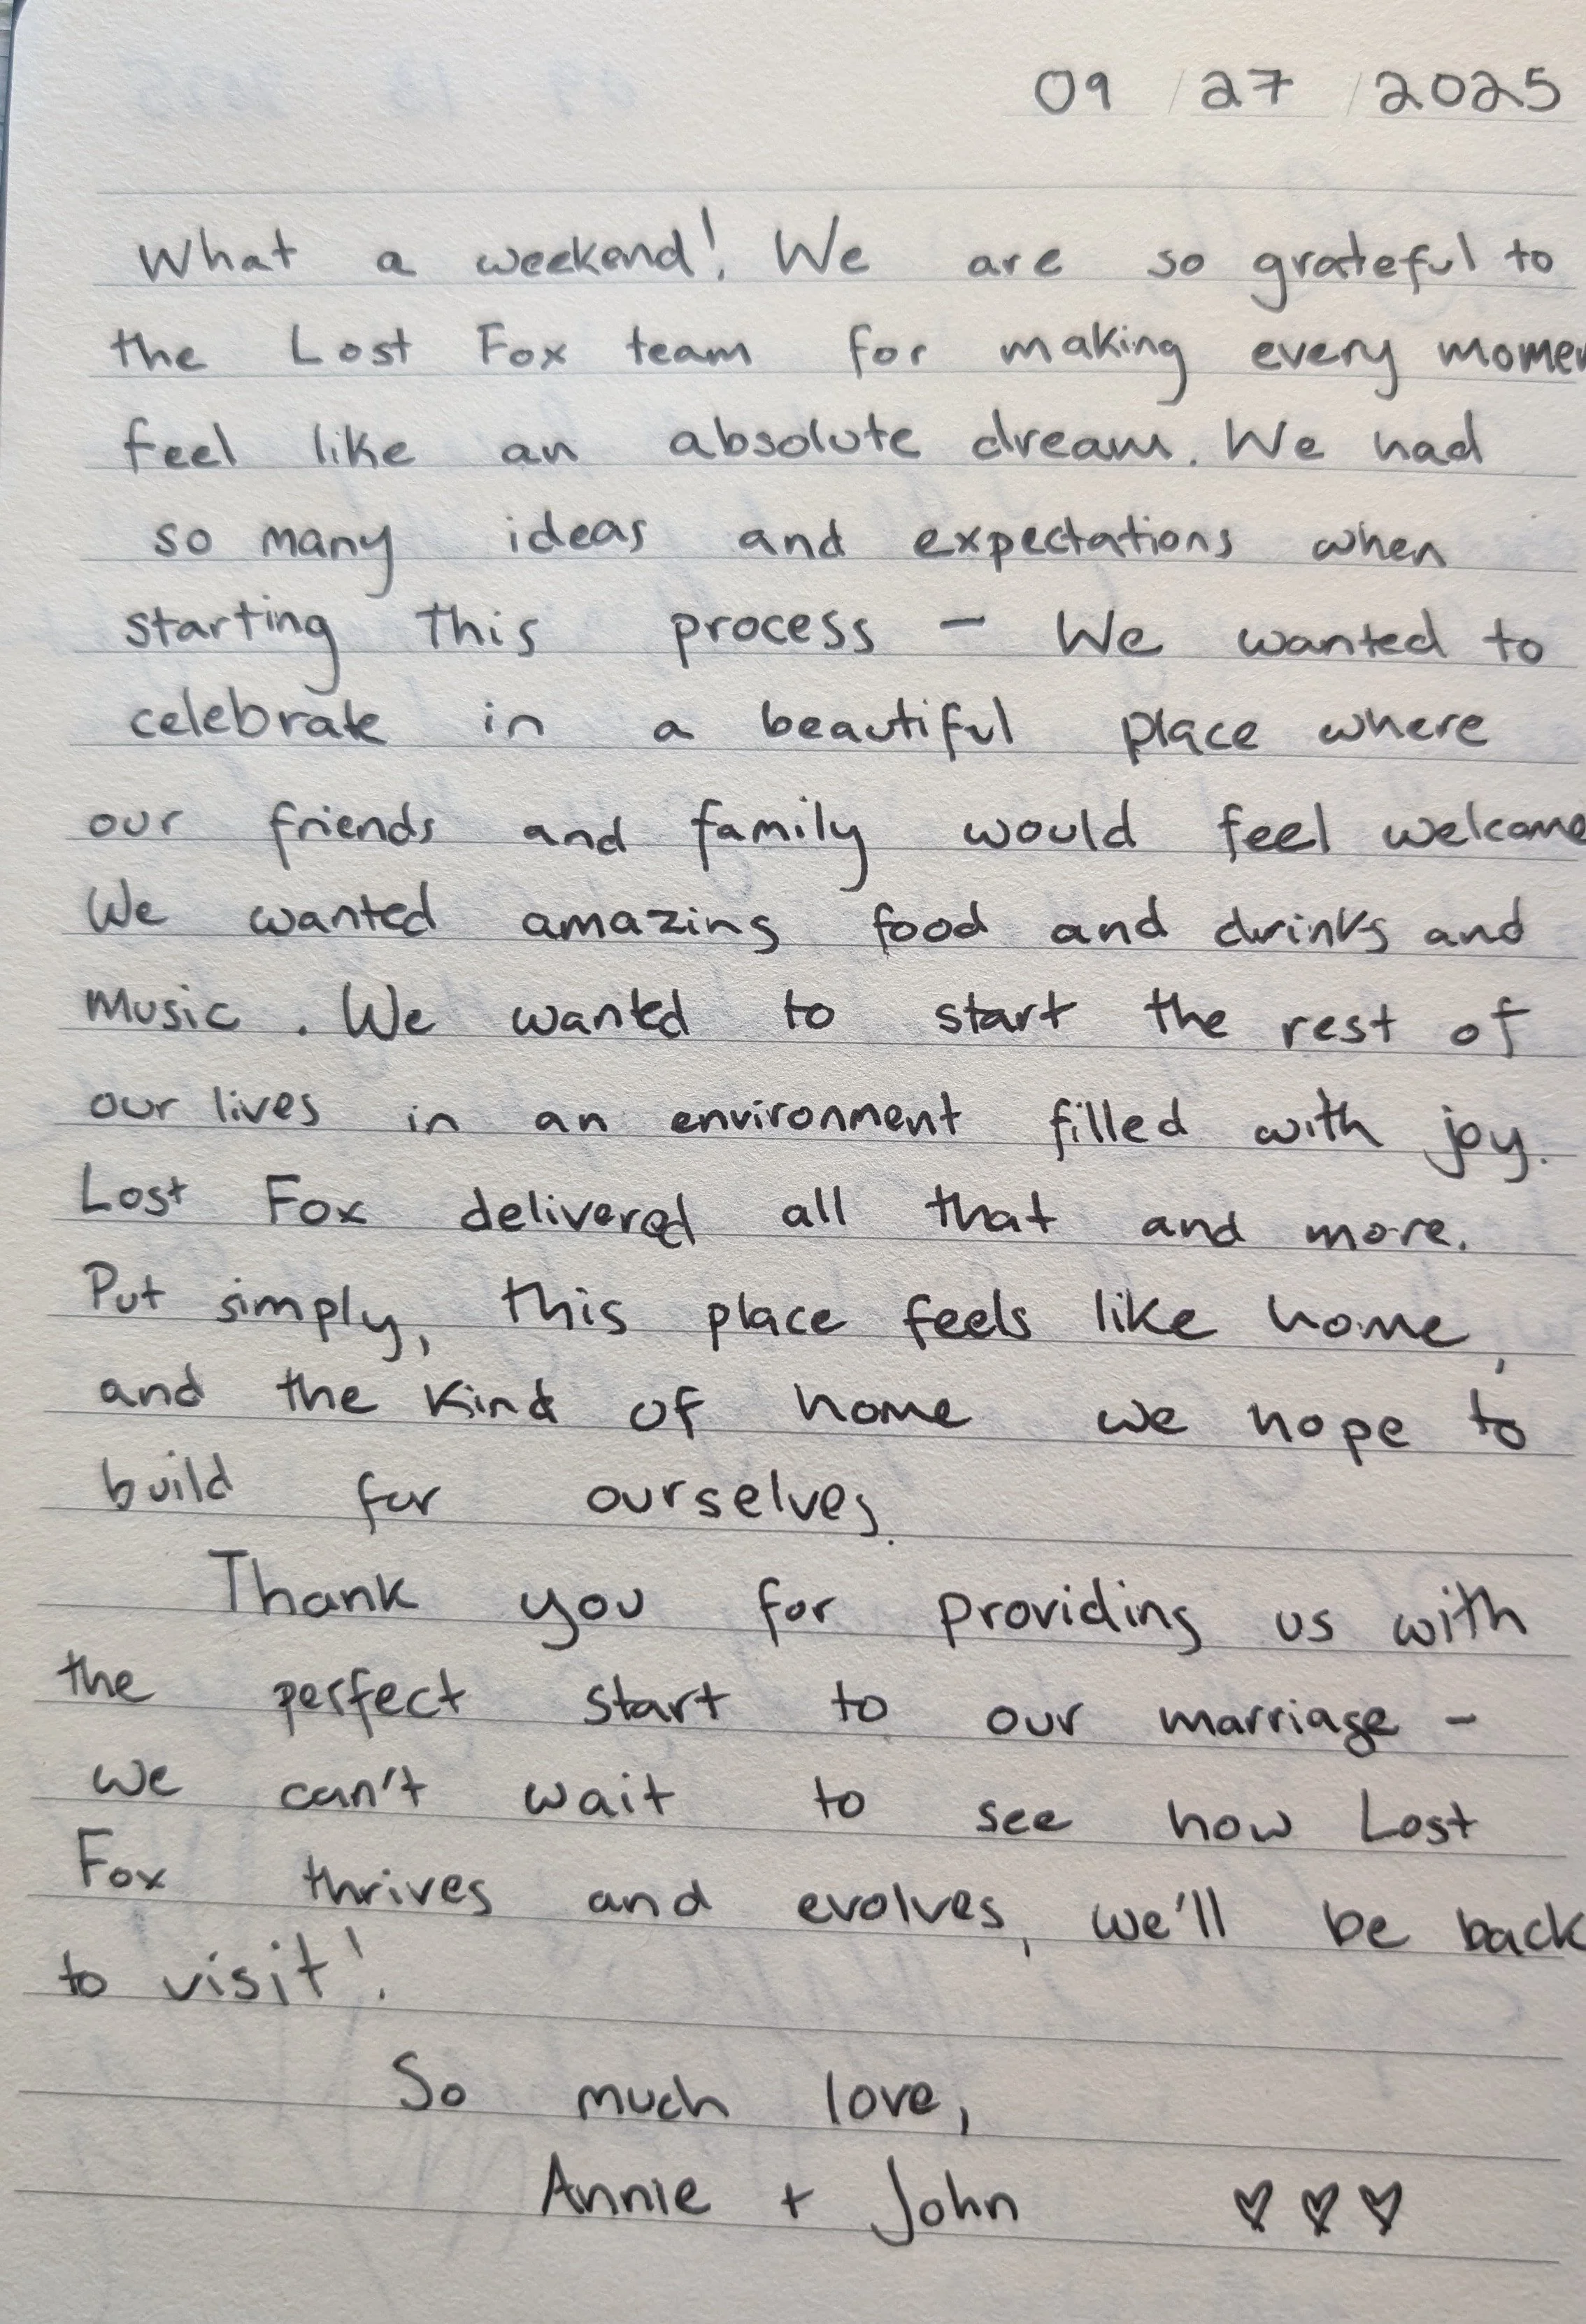 09 / 27 / 2025
What a weekend! We are so grateful to
the Lost Fox team for making every momen
feel like an absolute dream. We had
so many ideas and expectations when
starting this process - We wanted to
celebrate in a beautiful place where
our friends and family would feel welcome
We wanted amazing food and drinks and
music. We wanted to start the rest of
our lives in an environment filled with joy.
Lost Fox delivered all that and more.
Put simply, this place feels like home,
and the kind of home we hope to
build for ourselves.
Thank you for providing us with
the perfect start to our marriage -
we can't wait to see how Lost
Fox thrives and evolves, we'll be back
to visit!
So much love,
Annie + John ♡♡♡